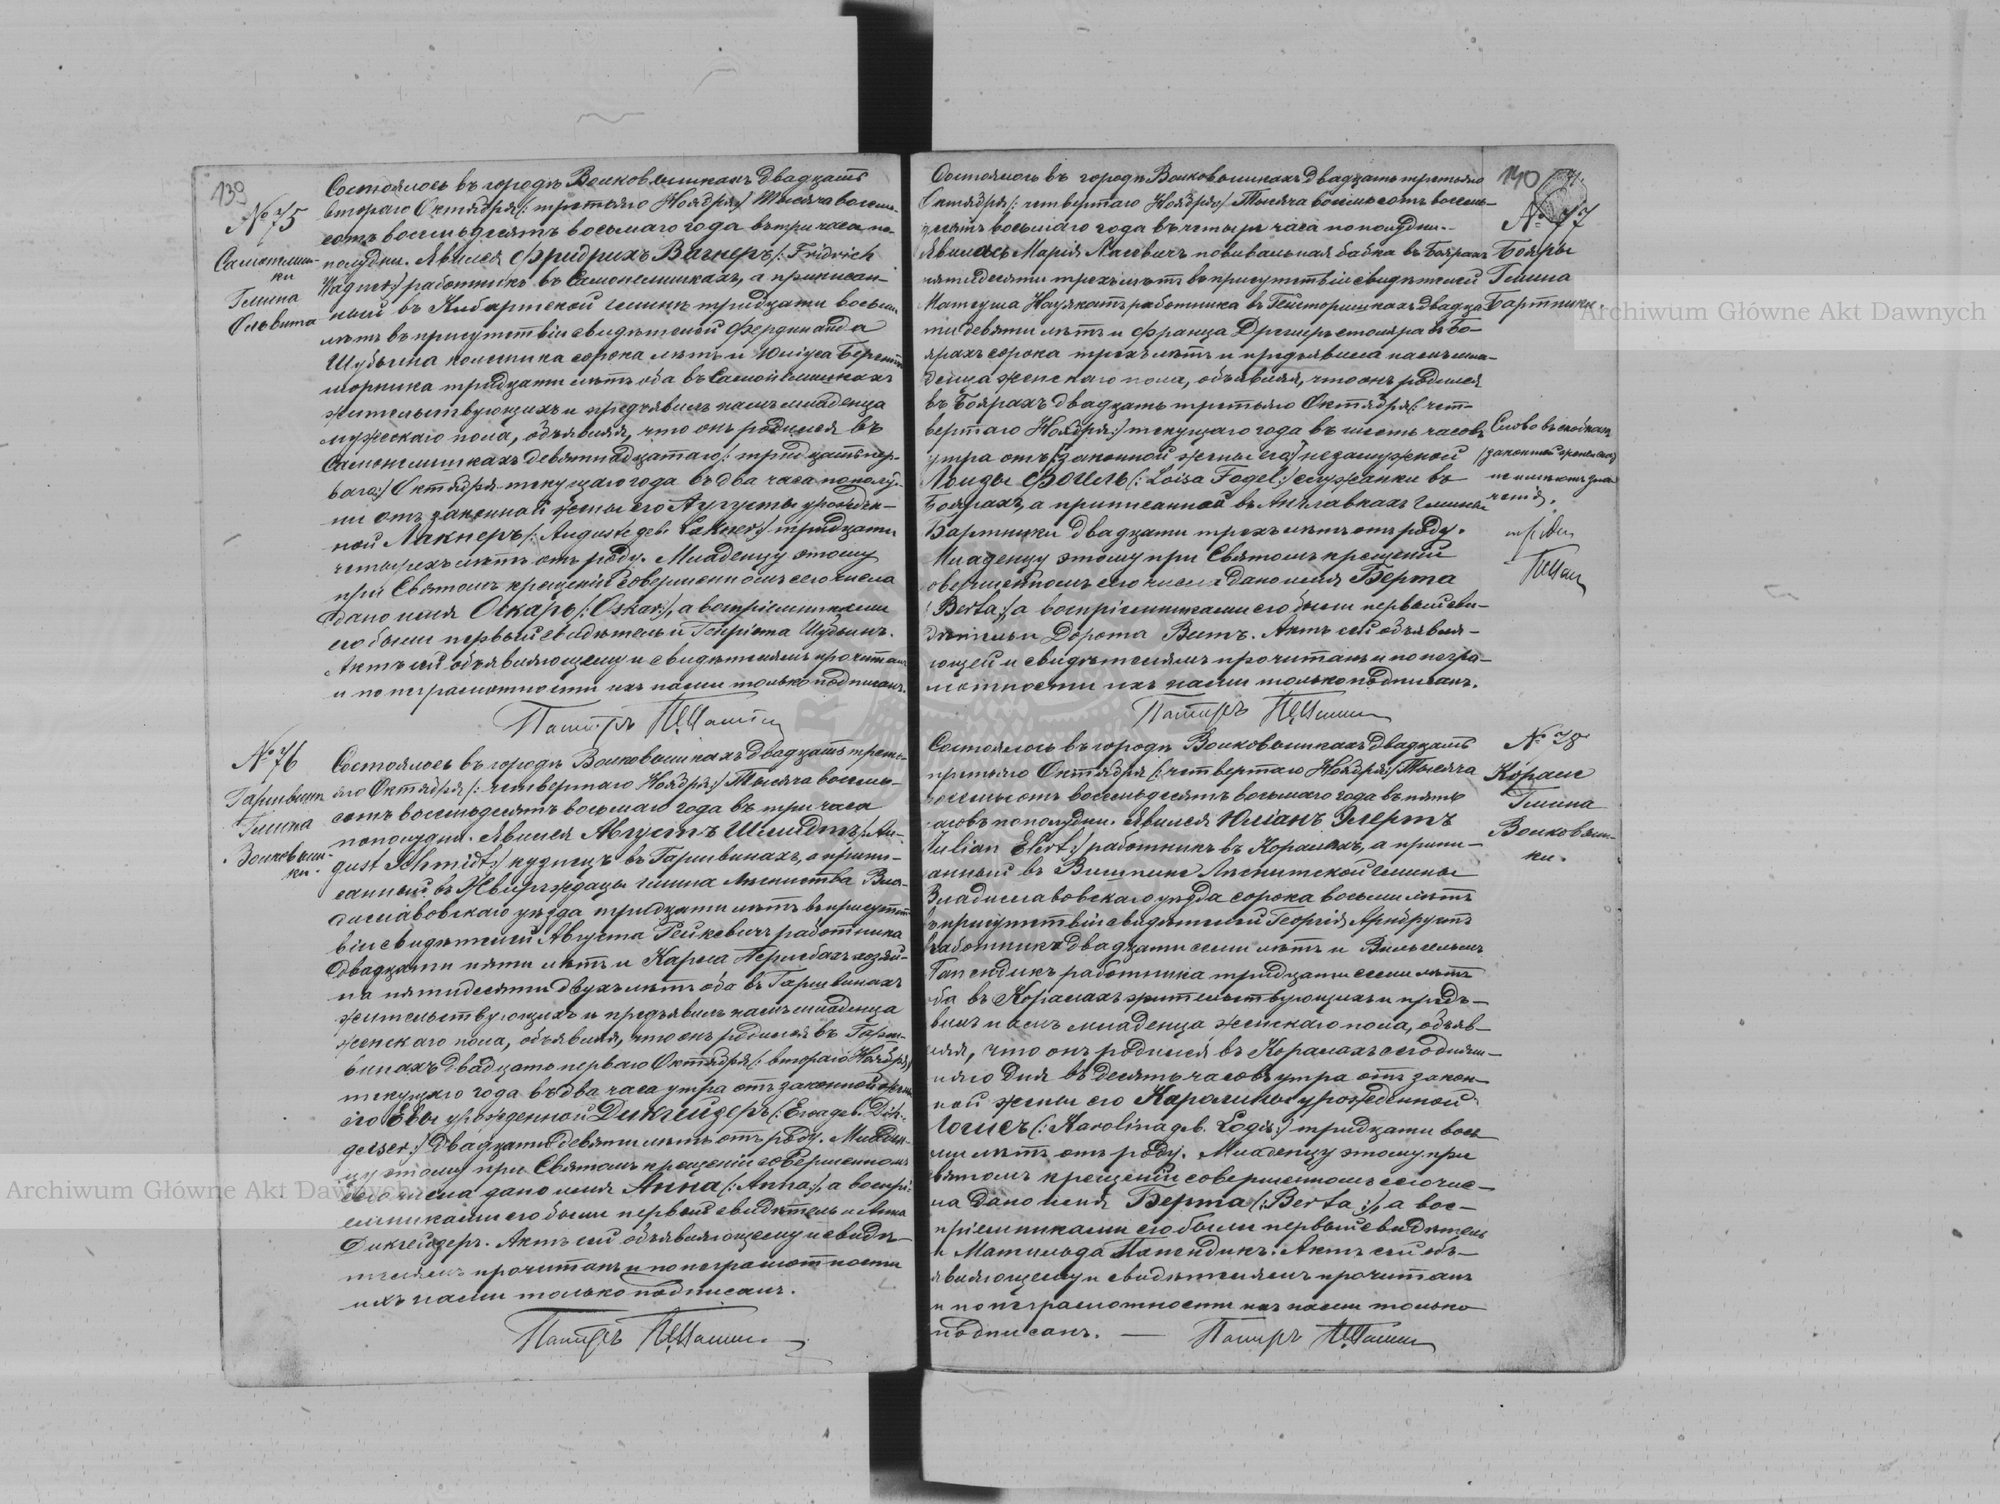 139
№ 75
Самонелиш-
ки
Гмина
Ольвита
Состоялось въ городѣ Волковышкахъ двадцать
втораго Октября /: третьяго Ноября :/ тысяча восемь-
сотъ восемьдесятъ восьмаго года въ три часа по-
полудни. Явился Фридрихъ Вагнеръ /: Fridrich
Wagner :/ работникъ въ Самонелишкахъ, а приписан-
ный въ Кибартской гминѣ тридцати восьми
лѣтъ въ присутствіи свидѣтелей Фердинанда
Шубына колесника сорока лѣтъ и Юліуса
морника тридцати лѣтъ оба въ Самонелишкахъ
жительствующихъ и предъявилъ намъ младенца
мужескаго пола, объявляя, что онъ родился въ
Самонелишкахъ девятнадцатаго /: тридцать пер-
ваго :/ Октября текущаго года въ два часа пополу-
ни отъ законной жены его Августы урожден-
ной Лакнеръ /: Auguste geb. Lakner :/ тридцати
четырехъ лѣтъ отъ роду. Младенцу этому
при Святомъ крещеніи совершенномъ сего числа
дано имя Оскаръ /: Oskar :/, а воспріемниками
его были первый свидѣтель и Генріета Шубынъ.
Актъ сей объявляющему и свидѣтелямъ прочитанъ
и по неграмотности ихъ нами только подписанъ.
Пасторъ
№ 76
Гаршвины
Гмина
Волковыш-
ки.
Состоялось въ городѣ Волковышкахъ двадцать треть-
яго Октября /: четвертаго Ноября :/ Тысяча восемь-
сотъ восемьдесятъ восьмаго года въ три часа
пополудни. Явился Августъ Шмидтъ /: Au-
gust Schmidt :/ кузнецъ въ Гаршвинахъ, а припи-
санный въ гмина Влa-
диславовскаго уѣзда тридцати лѣтъ въ присутст-
віи свидѣтелей Августа Рейкевичъ работника
двадцати пяти лѣтъ и Карла Перлбахъ хозяи-
на пятидесяти двухъ лѣтъ оба въ Гаршвинахъ
жительствующихъ и предъявилъ намъ младенца
женскаго пола, объявляя, что онъ родился въ Гарш-
винахъ двадцать перваго Октября /: втораго Ноября :/
текущаго года въ два часа утра отъ законной жены
его Евы урожденной Дикгейзеръ /: Ewa geb. Dik-
geiser :/ двадцати девяти лѣтъ отъ роду. Младен-
цу этому при Святомъ крещеніи совершенномъ
сего числа дано имя Анна /: Anna :/, а воспрі-
емниками его были первый свидѣтель и Анна
Дикгейзеръ. Актъ сей объявляющему и свидѣ-
телямъ прочитанъ и по неграмотности
ихъ нами только подписанъ.
Пасторъ
140
№ 77
Бояры
Гмина
Бартники.
Состоялось въ городѣ Волковышкахъ двадцать третьяго
Октября /: четвертаго Ноября :/ Тысяча восемьсотъ восемь-
десятъ восьмаго года въ четыри часа пополудни.
Явилась Марія повивальная бабка въ Боярахъ
пятидесяти трехъ лѣтъ въ присутствіи свидѣтелей
Матеуша работника въ двадца
ти девяти лѣтъ и Франца Дреслеръ столяра въ Бо-
ярахъ сорока трехъ лѣтъ и предъявила намъ мла-
денца женскаго пола, объявляя, что онъ родился
въ Боярахъ двадцать третьяго Октября /: чет-
вертаго Ноября :/ текущаго года въ шесть часовъ
утра отъ /законной жены его/ незамужной
Лоизы Фогель /: Loisa Fogel :/ служанки въ
Боярахъ, а приписанной въ Англавкахъ гмины
Бартники двадцати трехъ лѣтъ отъ роду.
Младенцу этому при Святомъ крещеніи
совершенномъ сего числа дано имя Берта
/: Berta :/, а воспріемниками его были первый сви-
дѣтель и Дорота Витъ. Актъ сей объявля-
ющей и свидѣтелямъ прочитанъ и по негра-
мотности ихъ нами только подписанъ.
Пасторъ
Слово въ скобкахъ
/законной жены его/
не имѣютъ зна-
ченія.
№ 78
Корале
Гмина
Волковыш-
ки.
Состоялось въ городѣ Волковышкахъ двадцать
третьяго Октября /: четвертаго Ноября :/ Тысяча
восемьсотъ восемьдесятъ восьмаго года въ пять
часовъ пополудни. Явился Юліанъ Элертъ
/: Julian Elert :/ работникъ въ Коралахъ, а припи-
санный въ гмины
Владиславовскаго уѣзда сорока восьми лѣтъ
въ присутствіи свидѣтелей Георгія
работника двадцати семи лѣтъ и Вильгельмъ
Папендикъ работника тридцати семи лѣтъ
оба въ Коралахъ жительствующихъ и предъ-
вилъ намъ младенца женскаго пола, объяв-
ляя, что онъ родился въ Коралахъ сегодняш-
няго дня въ десять часовъ утра отъ закон-
ной жены его Каролины урожденной
Логисъ /: Karolina geb. Logis :/ тридцати вось
ми лѣтъ отъ роду. Младенцу этому при
Святомъ крещеніи совершенномъ сего чис-
ла дано имя Берта /: Berta :/, а вос-
пріемниками его были первый свидѣтель
и Матильда Папендикъ. Актъ сей объ-
являющему и свидѣтелямъ прочитанъ
и по неграмотности ихъ нами только
подписанъ. — Пасторъ
Archiwum Główne Akt Dawnych
Archiwum Główne Akt Dawnych